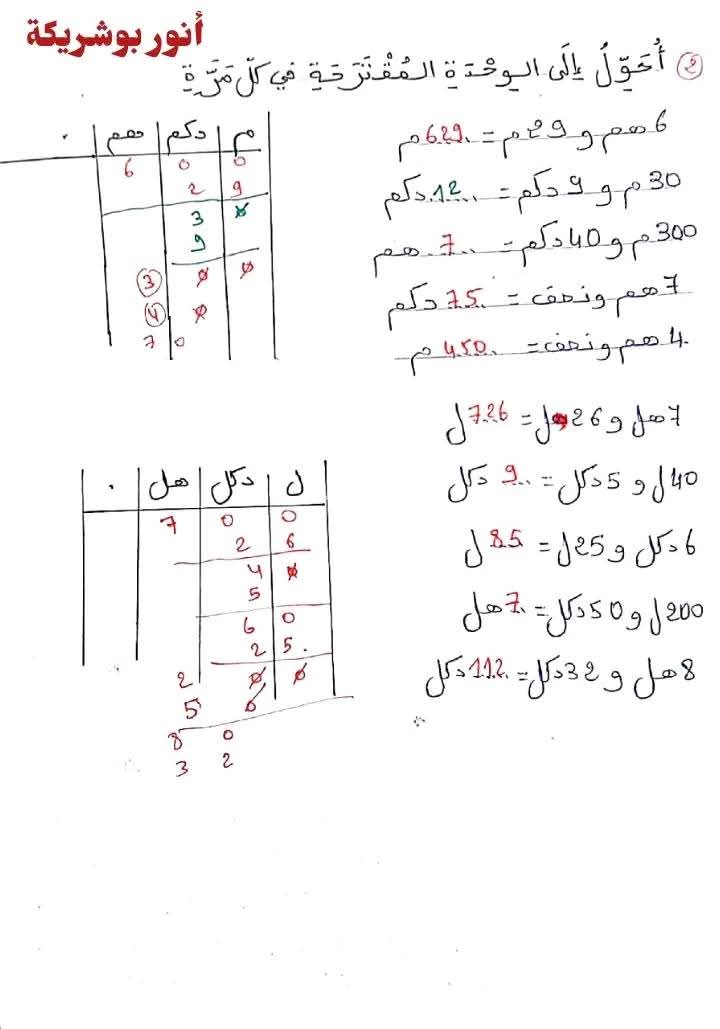 أنور بوشريكة
② أُحَوِّلُ إِلَى الـوِحْدَةِ الـمُقْتَرَحَةِ في كلّ مَرَّةٍ
6 هم و 29 م = 629 م
30 م و 9 دكم = 12 دكم
300 م و 40 دكم = 7 هم
7 هم ونصف = 75 دكم
4 هم ونصف = 450 م
م دكم هم .
6 0 0
2 9
3 0
9
③ 0 0
④ 0
7 0
7 هل و 26 ل = 726 ل
40 ل و 5 دكل = 9 دكل
6 دكل و 25 ل = 85 ل
200 ل و 50 دكل = 7 هل
8 هل و 32 دكل = 112 دكل
ل دكل هل .
7 0 0
2 6
4 0
5
6 0
2 5
2 0 0
5 0
8 0
3 2